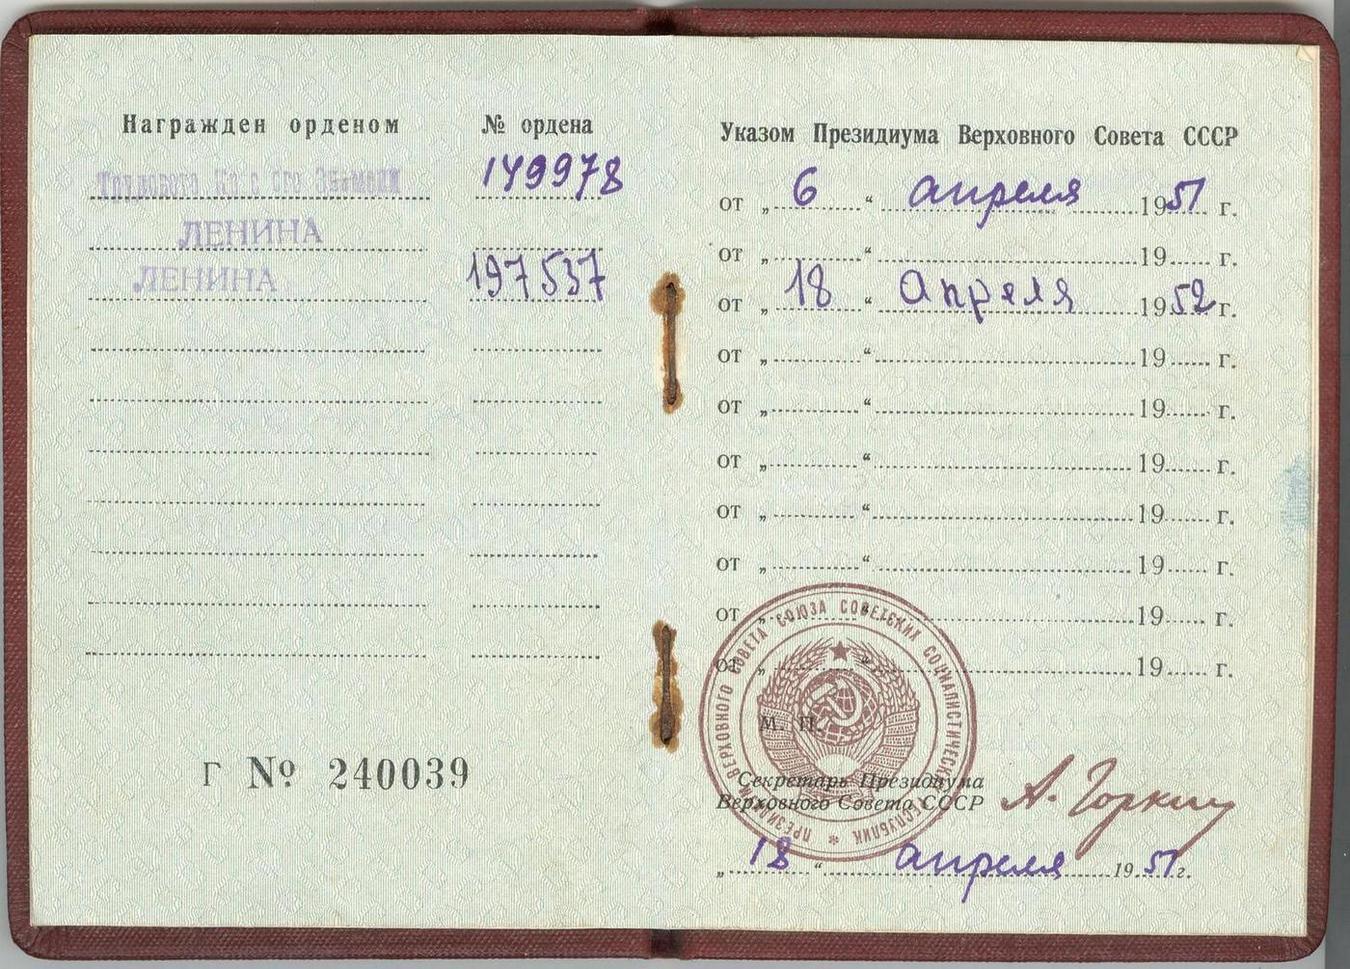 Награжден орденом № ордена
Трудового Кра с ого Знамени 149978
ЛЕНИНА
ЛЕНИНА 197537
Г № 240039
Указом Президиума Верховного Совета СССР
от „ 6 “ апреля 1951 г.
от „ “ 19 г.
от „ 18 “ Апреля 1952 г.
от „ “ 19 г.
от „ “ 19 г.
от „ “ 19 г.
от „ “ 19 г.
от „ “ 19 г.
от „ “ 19 г.
от „ “ 19 г.
ПРЕЗИДИУМ ВЕРХОВНОГО СОВЕТА СОЮЗА СОВЕТСКИХ СОЦИАЛИСТИЧЕСКИХ РЕСПУБЛИК *
М. П.
Секретарь Президиума
Верховного Совета СССР А. Горкин
„ 18 “ апреля 1951 г.